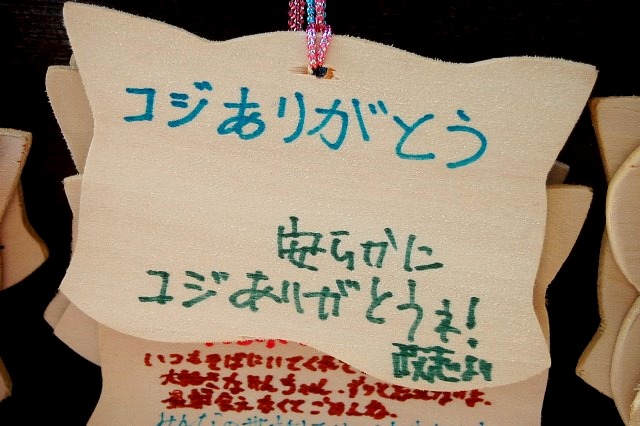 コジありがとう
安らかに
コジありがとうネ!
政志より
いつもそばにいてくれて
大好きなけんちゃん。ずっと
最期会えなくてごめんね。
みんなの